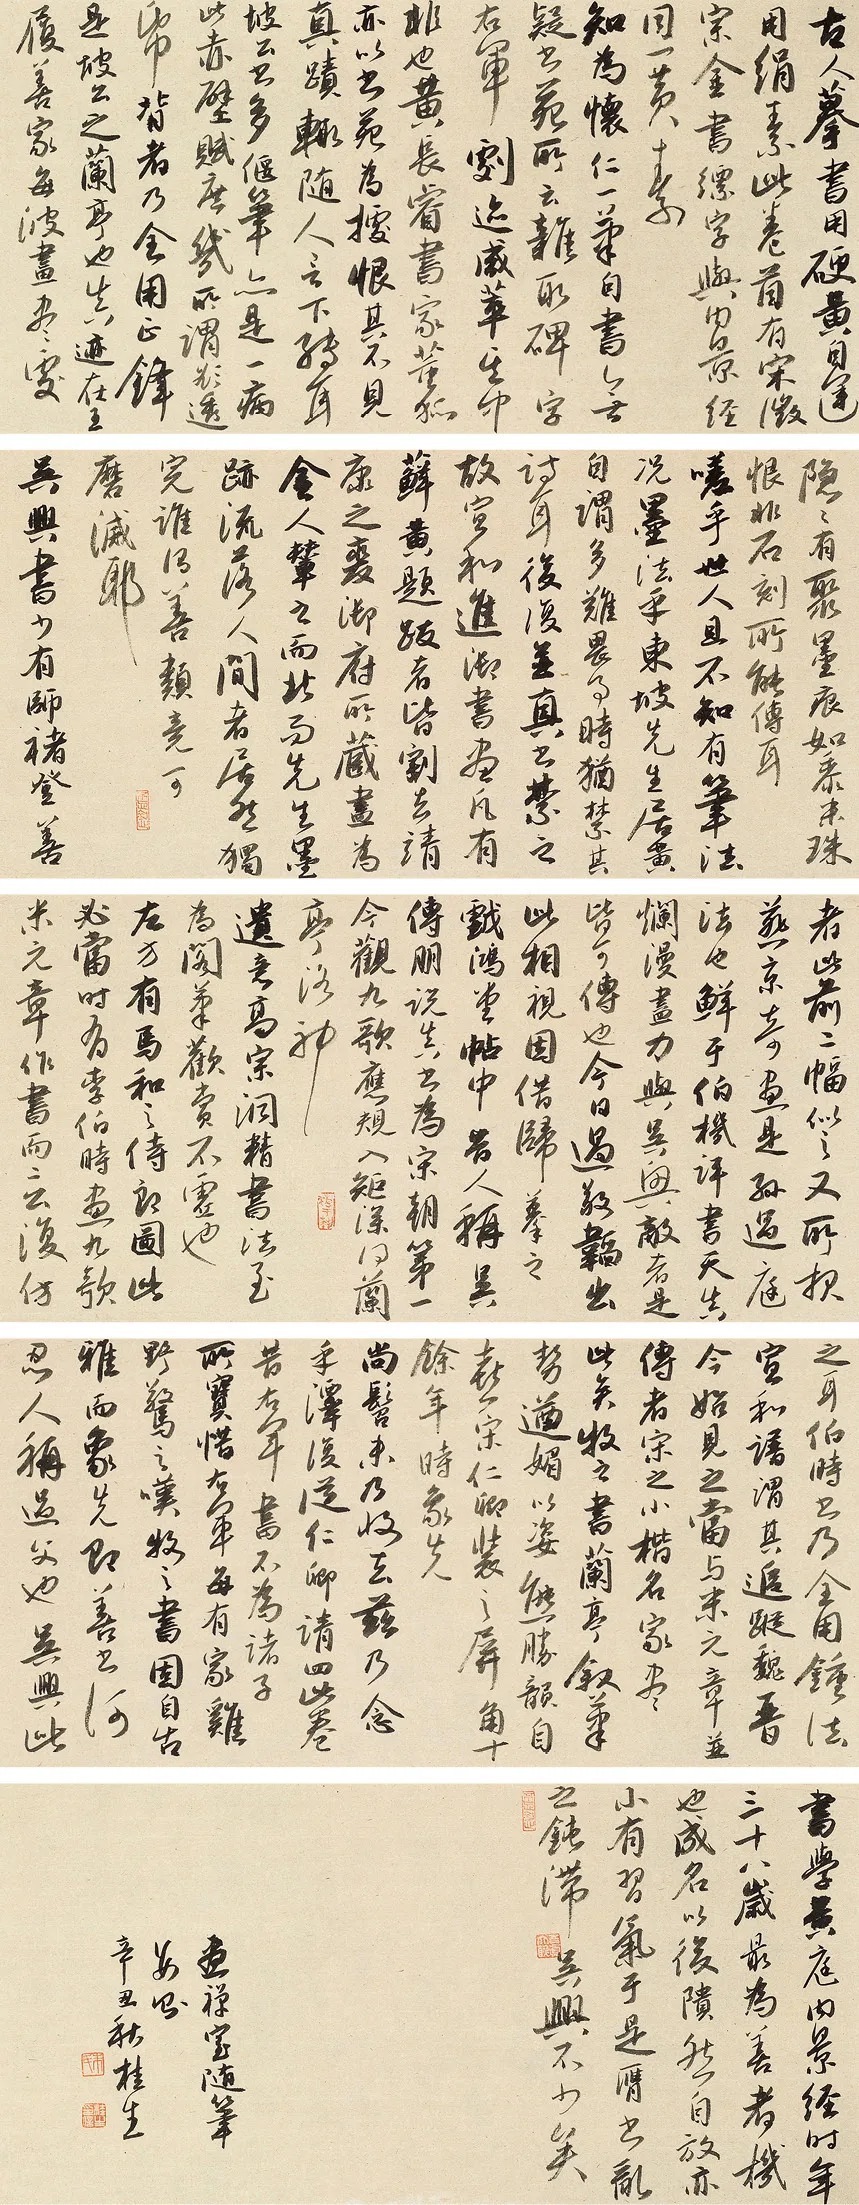 古人摹書用硬黃自運
用絹素此卷首有宋徽
宗金書縹字與內景經
同一黃素
知為懷仁一筆自書無
疑書苑所云雜取碑字
右軍劇迹咸萃其中
非也黃長睿書家董狐
亦以書苑為據恨其不見
真蹟輒隨人言下轉耳
坡公書多偃筆亦是一病
此赤壁賦庶幾所謂欲透
紙背者乃全用正鋒
是坡公之蘭亭也真迹在王
履善家每波畫盡處
隱隱有聚墨痕如黍米珠
恨非石刻所能傳耳
嗟乎世人且不知有筆法
況墨法乎東坡先生居黃
自謂多難畏事時猶禁其
詩耳後復並真書禁之
故宣和進御書畫凡有
蘇黃題跋者皆割去靖
康之裒御府所藏盡為
金人輦之而北而先生墨
跡流落人間者居然獨
完誰得善類竟可
磨滅耶
吳興書少有師褚登善
者此前二幅似之又所損
燕京奇畫是孫過庭
法也鮮于伯機評書天真
爛漫盡力與吳興敵者是
皆可傳也今日過敬韜出
此相視因借歸摹之
戲鴻堂帖中昔人稱吳
傅朋說真書為宋朝第一
今觀九歌應規入矩深得蘭
亭洛神
遺意高宗洞精書法至
為閣筆歡賞不虛也
左方有馬和之侍郎圖此
必當時為李伯時畫九歌
米元章作書而二公復仿
之耳伯時書乃全用鍾法
宣和譜謂其追蹤魏晉
今始見之當與米元章並
傳者宋之小楷名家盡
此矣牧之書蘭亭敘筆
勢遒媚以姿態勝韻自
喜宋仁卿裝之屏角十
餘年時象先
尚髫未乃收去茲乃念
手澤復從仁卿請回此卷
昔右軍書不為諸子
所寶惜右軍每有家雞
野鶩之嘆牧之書固自古
雅而象先即善書何
忍人稱過父也吳興此
書學黃庭內景經時年
三十八歲最為善者機
也成名以後隤然自放亦
小有習氣于是贋書亂
之鈍滯吳興不少矣
畫禪室隨筆
辛丑秋桂生